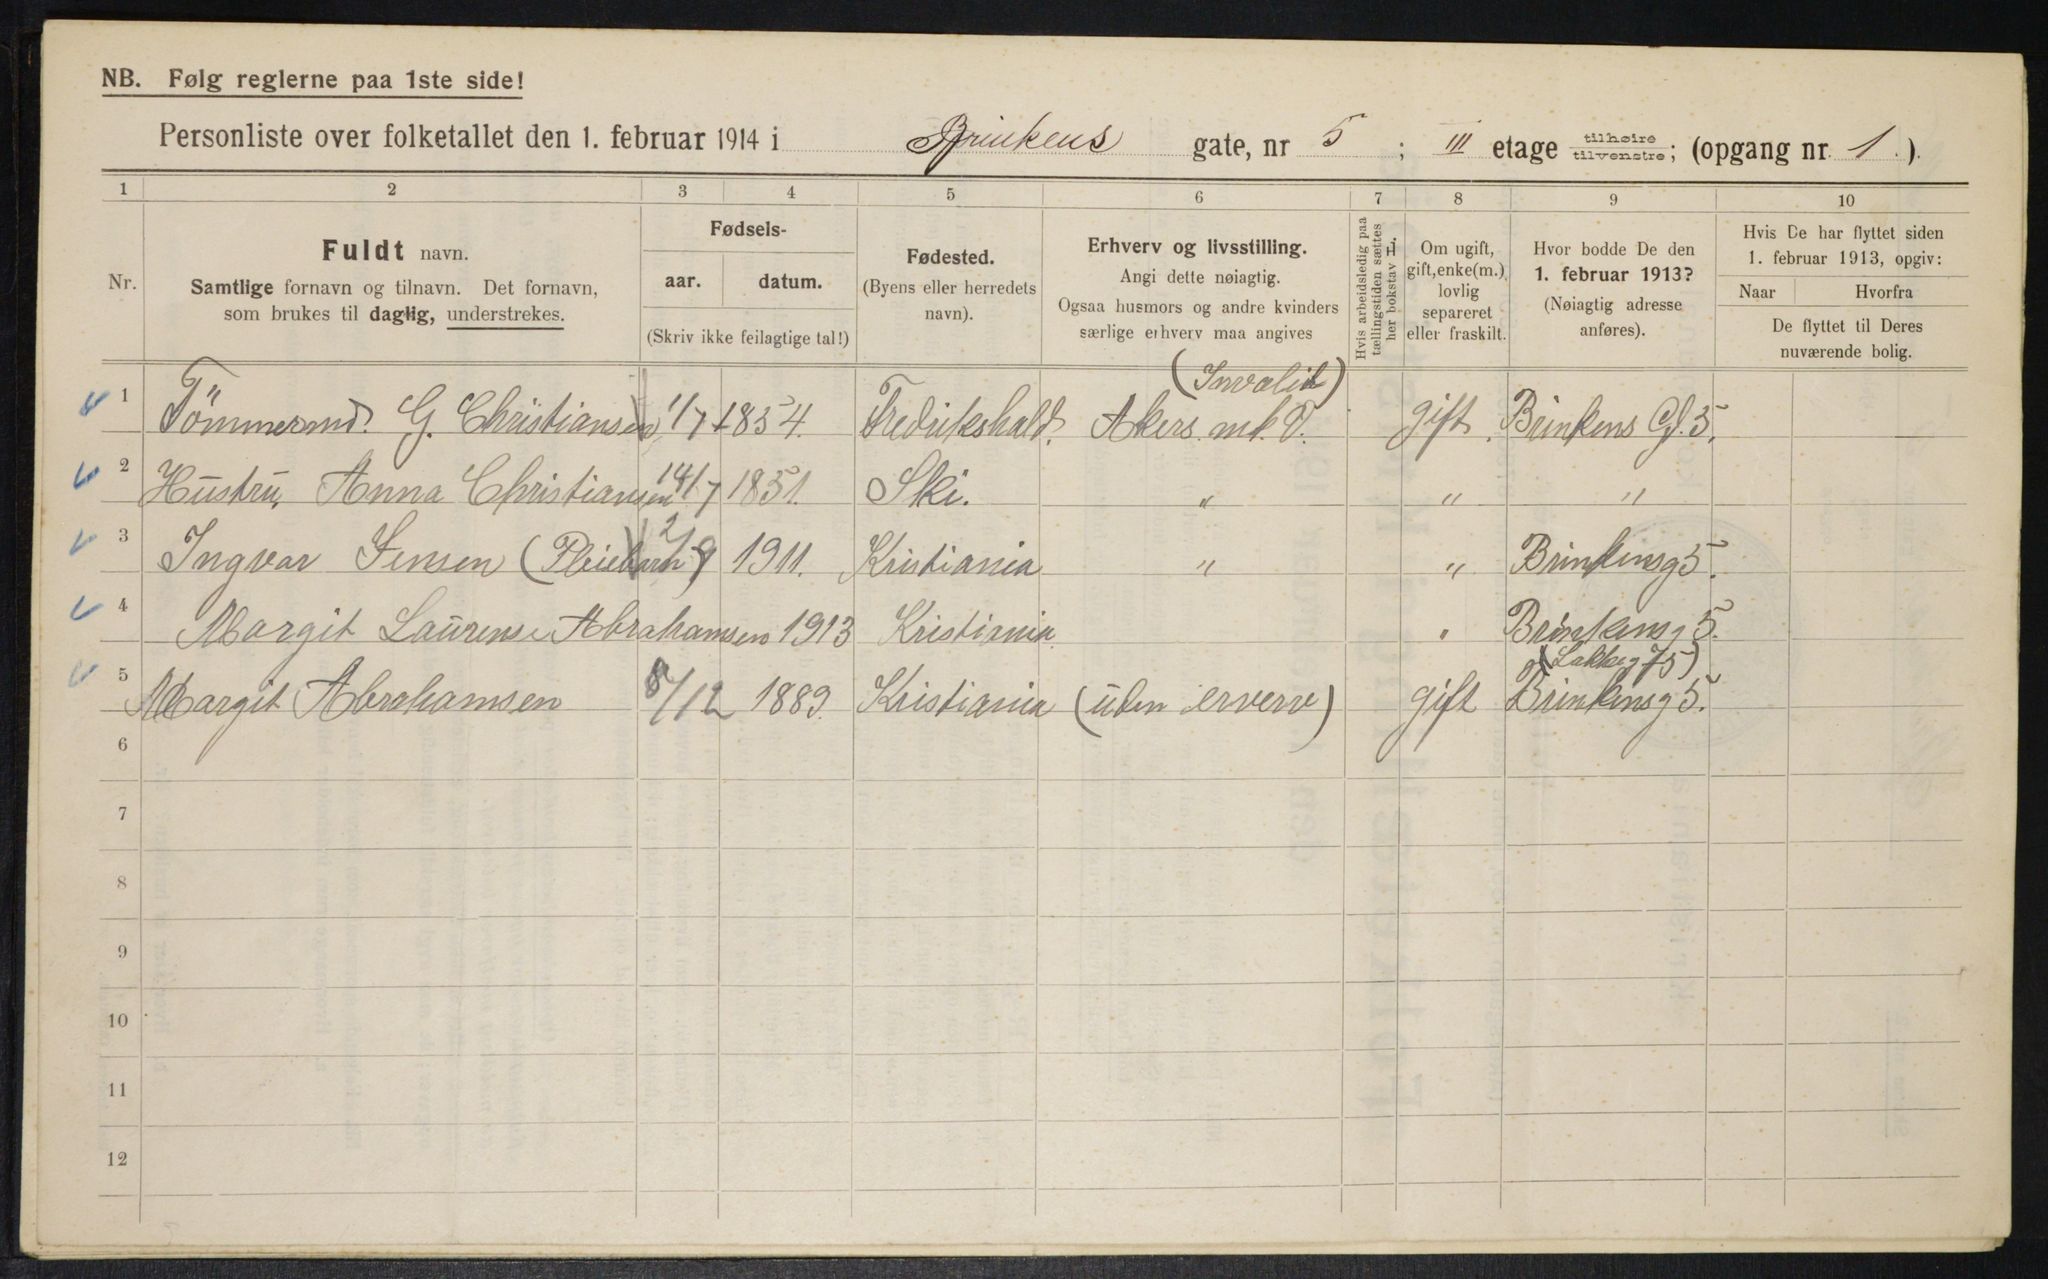 NB. Følg reglerne paa 1ste side!
Personliste over folketallet den 1. februar 1914 i Brinkens gate, nr 5 ; III etage tilhøire tilvenstre; (opgang nr. 1.).
1 2 3 4 5 6 7 8 9 10
Nr.
Fuldt navn.
Samtlige fornavn og tilnavn. Det fornavn,
som brukes til daglig, understrekes.
Fødsels-
aar. datum.
(Skriv ikke feilagtige tal!)
Fødested.
(Byens eller herredets
navn).
Erhverv og livsstilling.
Angi dette nøiagtig.
Ogsaa husmors og andre kvinders
særlige erhverv maa angives
Hvis arbeidsledig paa
tællingstiden sættes
her bokstav L.
Om ugift,
gift, enke(m.)
lovlig
separeret
eller fraskilt.
Hvor bodde De den
1. februar 1913?
(Nøiagtig adresse
anføres).
Hvis De har flyttet siden
1. februar 1913, opgiv:
Naar Hvorfra
De flyttet til Deres
nuværende bolig.
(Invalid)
1 Tömmermd. G. Christiansen 1/7 1854. Fredrikshald. Akers mk. V. gift. Brinkens Gd. 5.
2 Hustru, Anna Christiansen 14/7 1851. Ski. " " "
3 Ingvar Jensen (Pleiebarn) 2/9 1911. Kristiania " " Brinkensg 5.
4 Margit Laurense Abrahamsen 1913 Kristiania. " Brinkensg 5.
(Lakkeg 75)
5 Margit Abrahamsen 8/12 1889. Kristiania (uden erverv) gift Brinkensg 5.
6
7
8
9
10
11
12